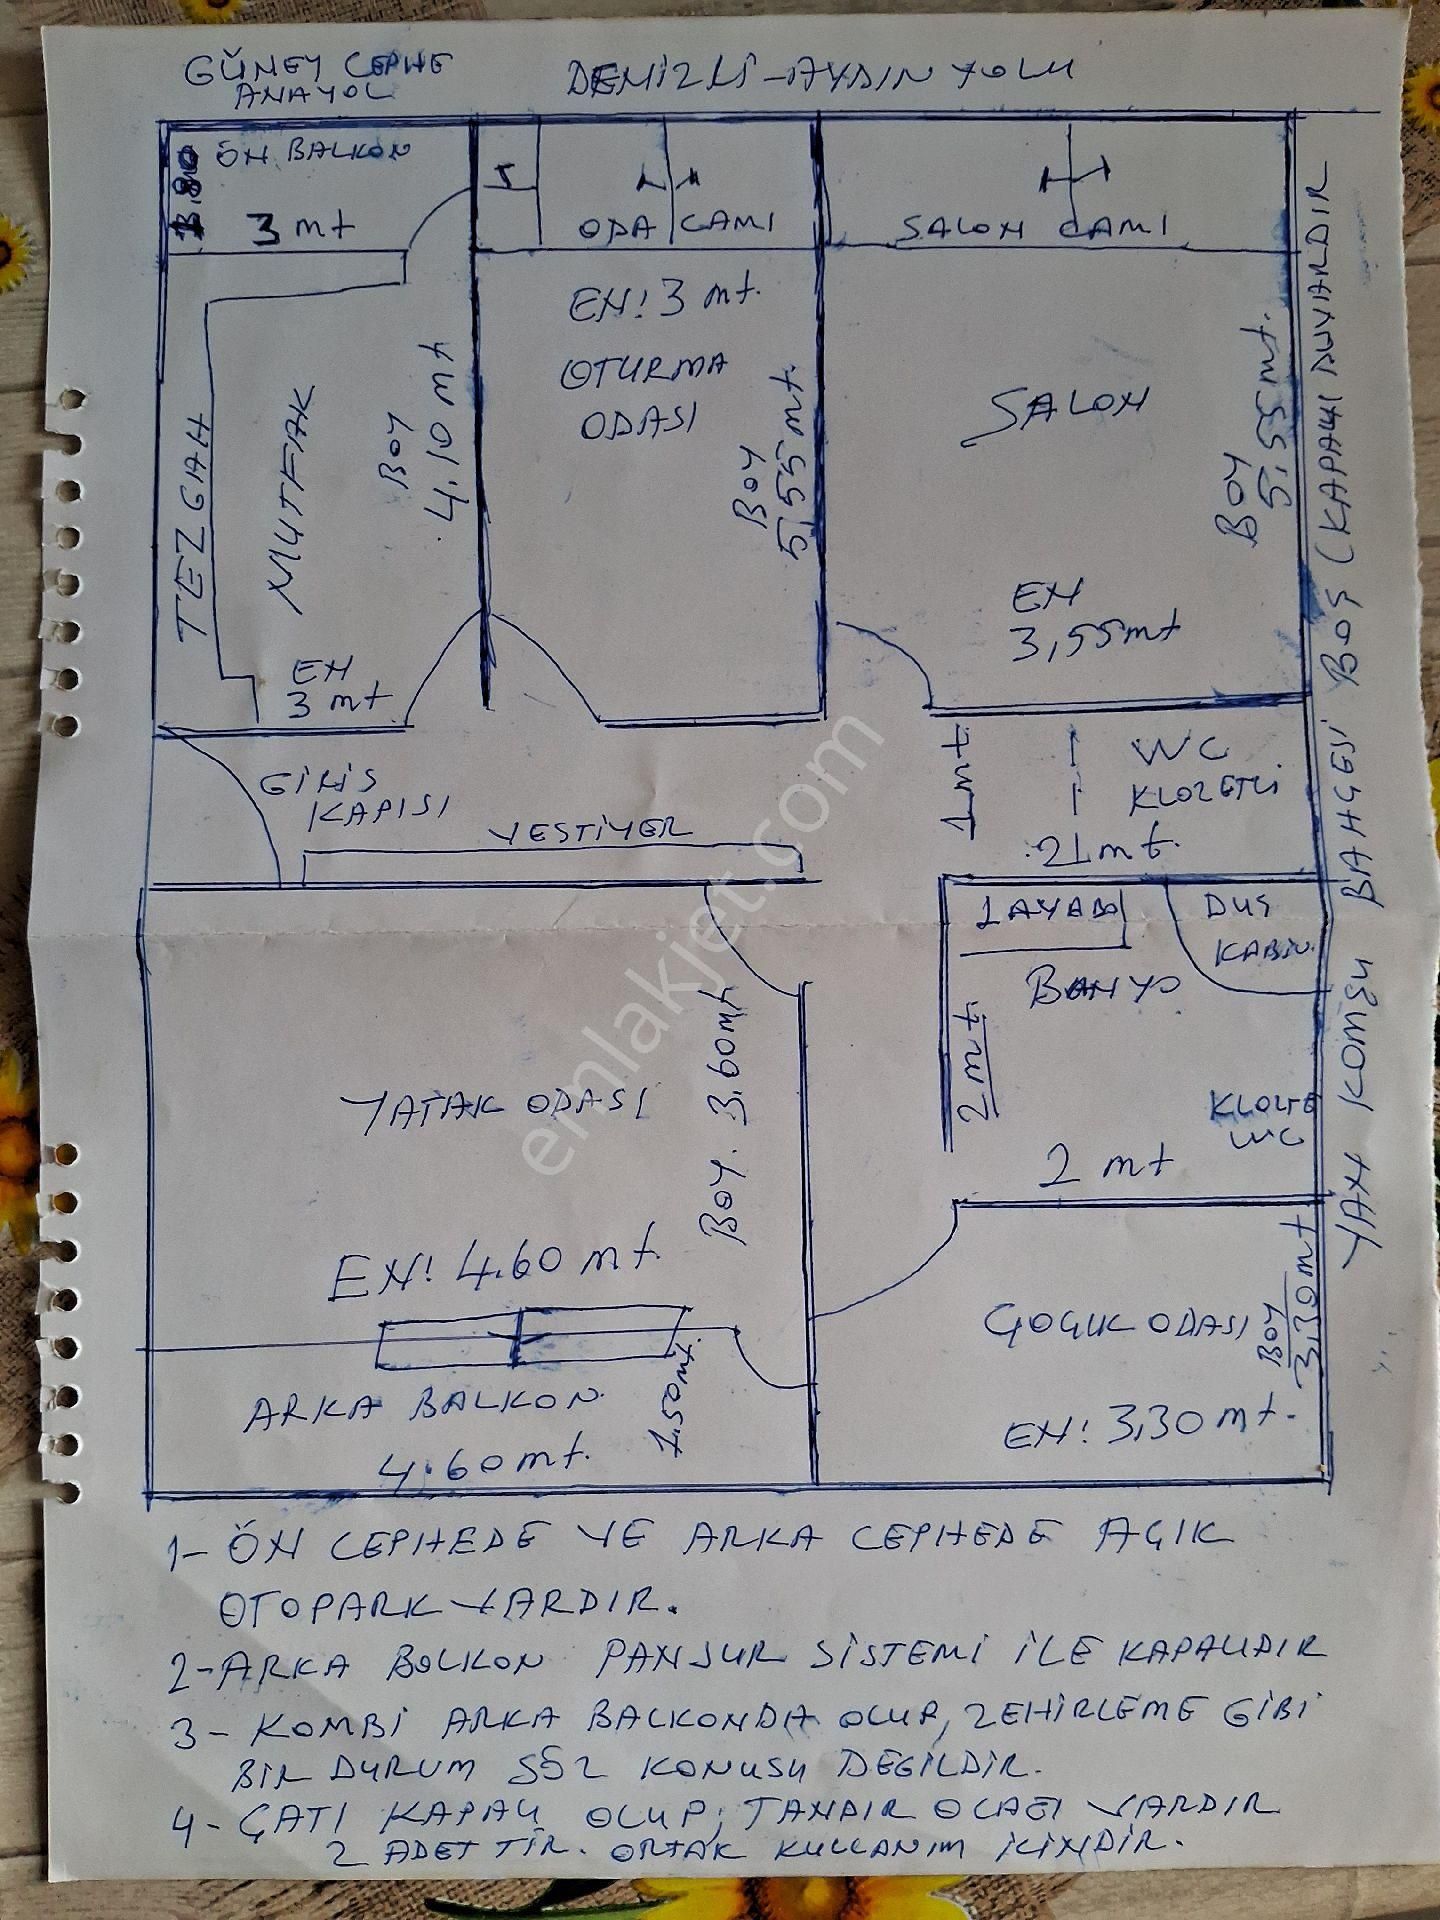 GÜNEY CEPHE
ANAYOL
DENİZLİ-AYDIN YOLU
ÖN BALKON
3 mt
ODA CAMI
SALON CAMI
EN! 3 mt.
OTURMA
ODASI
BOY
5,55 mt.
SALON
BOY
5,55 mt.
EN
3,55 mt
TEZGAH
MUTFAK
BOY
4,10 mt
EN
3 mt
GİRİŞ
KAPISI
VESTİYER
1 mt
WC
KLOZETLİ
LAVABO
DUŞ
KABİN
BANYO
2 mt
KLOZTE
WC
2 mt
YATAK ODASI
BOY. 3.60 mt
EN! 4.60 mt.
ARKA BALKON
4.60 mt.
1,50 mt.
ÇOCUK ODASI
BOY
3,30 mt
EN! 3,30 mt.
YAN KOMŞU BAHÇESİ BOŞ (KAPALI DUVARDIR
1- ÖN CEPHEDE VE ARKA CEPHEDE AÇIK
OTOPARK VARDIR.
2- ARKA BALKON PANJUR SİSTEMİ İLE KAPALIDIR
3- KOMBİ ARKA BALKONDA OLUP, ZEHİRLEME GİBİ
BİR DURUM SÖZ KONUSU DEĞİLDİR.
4- ÇATI KAPALI OLUP, TANDIR OCAĞI VARDIR
2 ADETTİR. ORTAK KULLANIM İÇİNDİR.
emlakjet.com